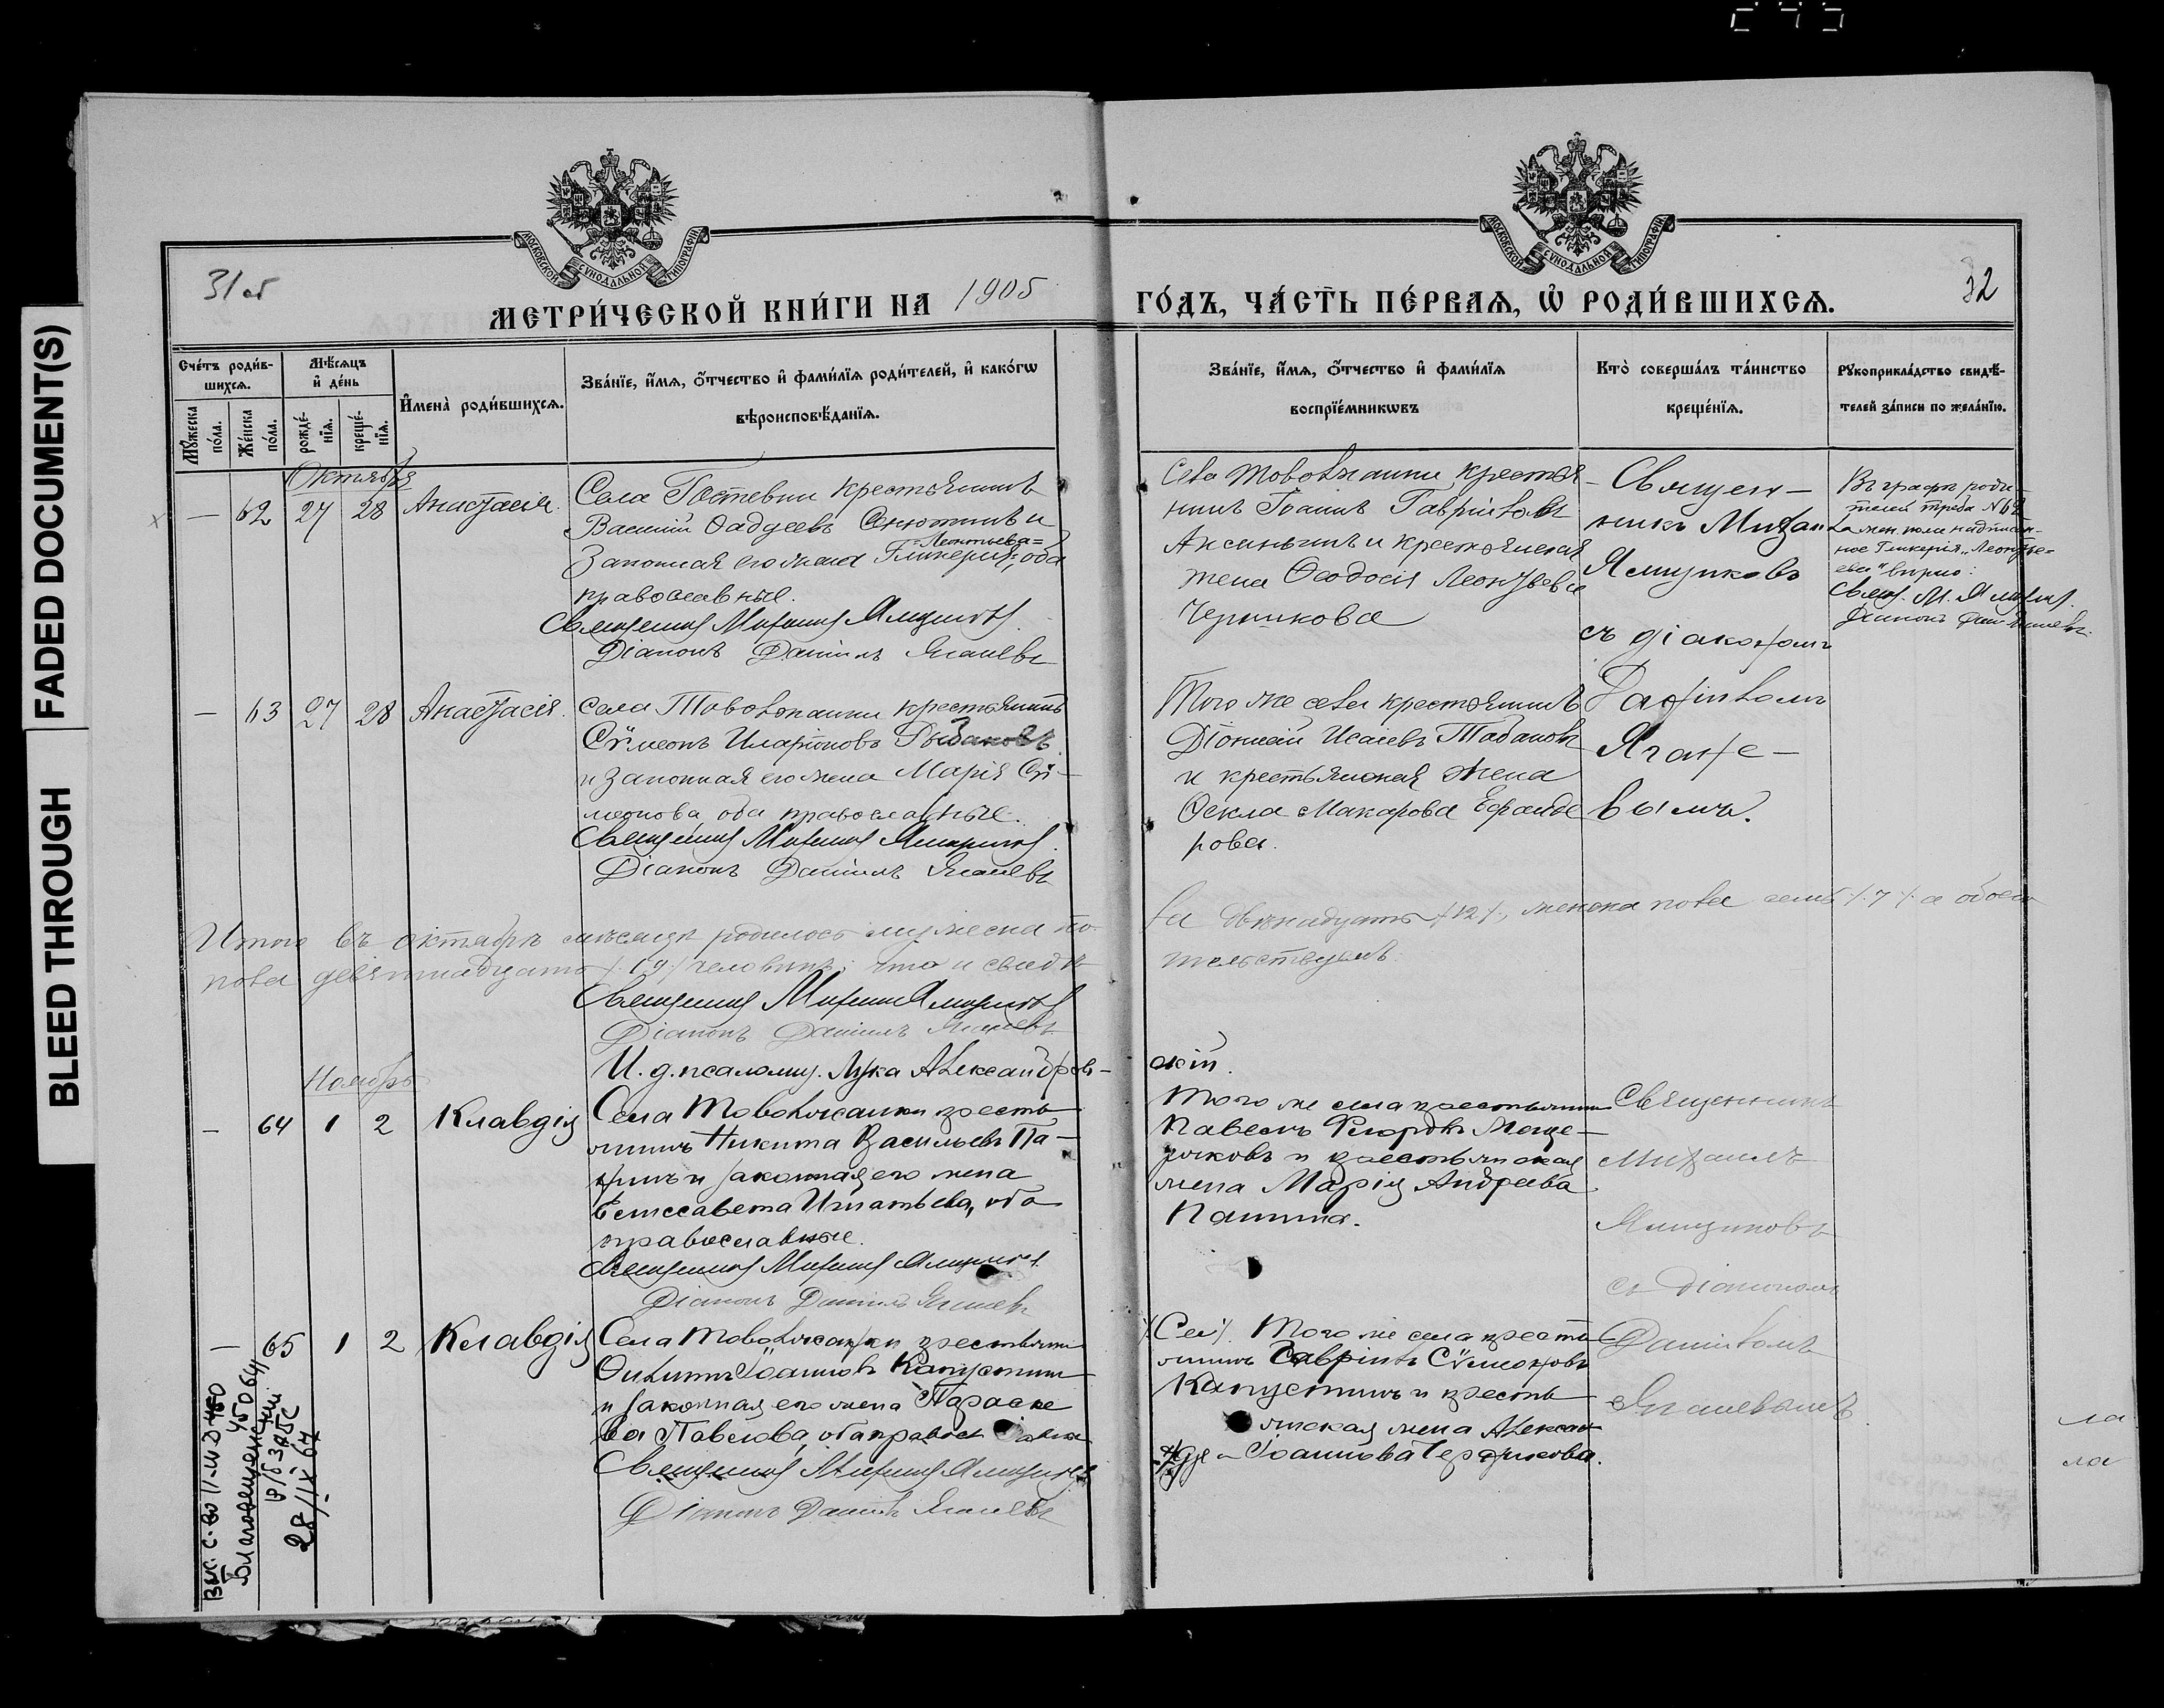 FADED DOCUMENT(S)
BLEED THROUGH
МОСКОВСКОЙ СѴНОДАЛЬНОЙ ТИПОГРАФІИ
МОСКОВСКОЙ СѴНОДАЛЬНОЙ ТИПОГРАФІИ
31об
32
МЕТРИ́ЧЕСКОЙ КНИ́ГИ НА 1905
ГО́ДЪ, ЧА́СТЬ ПЕ́РВАѦ, Ѡ҆ РОДИ́ВШИХСѦ.
Сче́тъ роди́в-
шихсѧ.
Мꙋ́жеска
по́ла.
Же́нска
по́ла.
Мѣ́сѧцъ
и҆ де́нь
рожде́-
нїѧ.
креще́-
нїѧ.
И҆мена̀ роди́вшихсѧ.
Зва́нїе, и҆́мѧ, ѻ҆́тчество и҆ фами́лїѧ роди́телей, и҆ како́гѡ
вѣроисповѣ́данїѧ.
Зва́нїе, и҆́мѧ, ѻ҆́тчество и҆ фами́лїѧ
воспрїе́мникѡвъ
Кто̀ соверша́лъ та́инство
креще́нїѧ.
Рꙋкоприкла́дство свидѣ́-
телей за́писи по жела́нїю.
Октябрь
— 62 27 28 Анастасія
Села Гостевки крестьянинъ
Василій Фаддеевъ Сенютинъ и
Леонтьева
Законная его жена Гликерія, оба
православные.
Священникъ Михаилъ Ямщиковъ
Діаконъ Даніилъ
Села Товолжанки крестья-
нинъ Іоаннъ Гавріиловъ
и крестьянская
жена Ѳеодосія Леонтьева
Черникова
Священ-
никъ Михаилъ
Ямщиковъ
съ діакономъ
Въ графѣ роди-
телей треба №62
жен. пола надписан-
ное Гликерія „Леонтье-
ва" вѣрно:
Свящ. М. Ямщик.
Діаконъ
— 63 27 28 Анастасія.
Села Товолжанки крестьянинъ
Сѵмеонъ Иларіоновъ Рыбаковъ
и законная его жена Марія Сѵ-
меонова, оба православные.
Священникъ Михаилъ Ямщиковъ
Діаконъ Даніилъ
Того же села крестьянинъ
Діонисій Исаіевъ Табаковъ
и крестьянская жена
Ѳекла Макарова
рова.
Даніиломъ
вымъ.
Итого въ октябрѣ мѣсяцѣ родилось мужеска по-
ла двѣнадцать /12/, женска пола семь /7/ а обоего
пола девятнадцать /19/ человѣкъ; что и свидѣ-
тельствуемъ.
Священникъ Михаилъ Ямщиковъ
Діаконъ Даніилъ
И. д. псаломщ. Лука Александров-
скій.
Ноябрь
— 64 1 2 Клавдія
Села Товолжанки кресть-
янинъ Никита Васильевъ Па-
нинъ и законная его жена
Елисавета Игнатьева, оба
православные.
Священникъ Михаилъ Ямщиковъ
Діаконъ Даніилъ
Того же села крестьянинъ
Павелъ Ѳеодоровъ Меще-
ряковъ и крестьянская
жена Марія Андреева
Панина.
Священникъ
Михаилъ
Ямщиковъ
съ Діакономъ
— 65 1 2 Клавдія
Села Товолжанки крестьянинъ
Филиппъ Іоанновъ Капустинъ
и законная его жена Параске-
ва Павлова, оба правосл
Священникъ Михаилъ Ямщиковъ
Діаконъ Даніилъ
/Сел/. Того же села кресть-
янинъ Гавріилъ Сѵмеоновъ
Капустинъ и кресть-
янская жена Алексан-
дра Іоаннова
Даніиломъ
28/IX 67
ла
ла